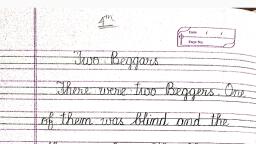 4th
Date / /
Page No.
Two Beggars
There were two Beggers. One
of them was blind and the